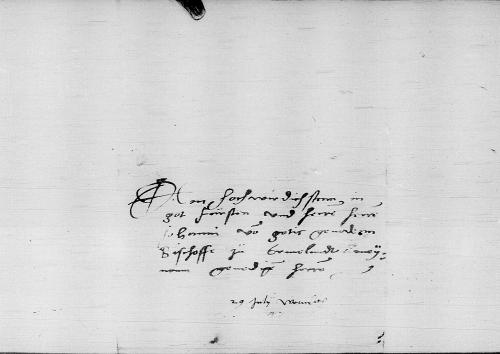 Dem hochwirdichstenn in
got fürsten und herrn herrn
Johanni von gotis genaden
Bischoffe zu Ermelandt
nem genedigen herrn
29 July